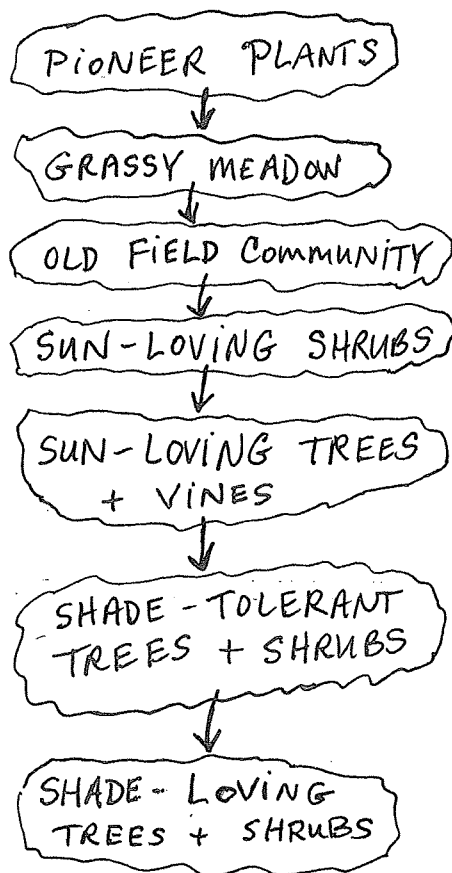 PiONEER PLANTS
GRASSY MEADOW
OLD FiELD COMMUNITY
SUN-LOViNG SHRUBS
SUN-LOViNG TREES
+ ViNES
SHADE-TOLERANT
TREES + SHRUBS
SHADE-LOViNG
TREES + SHRUBS